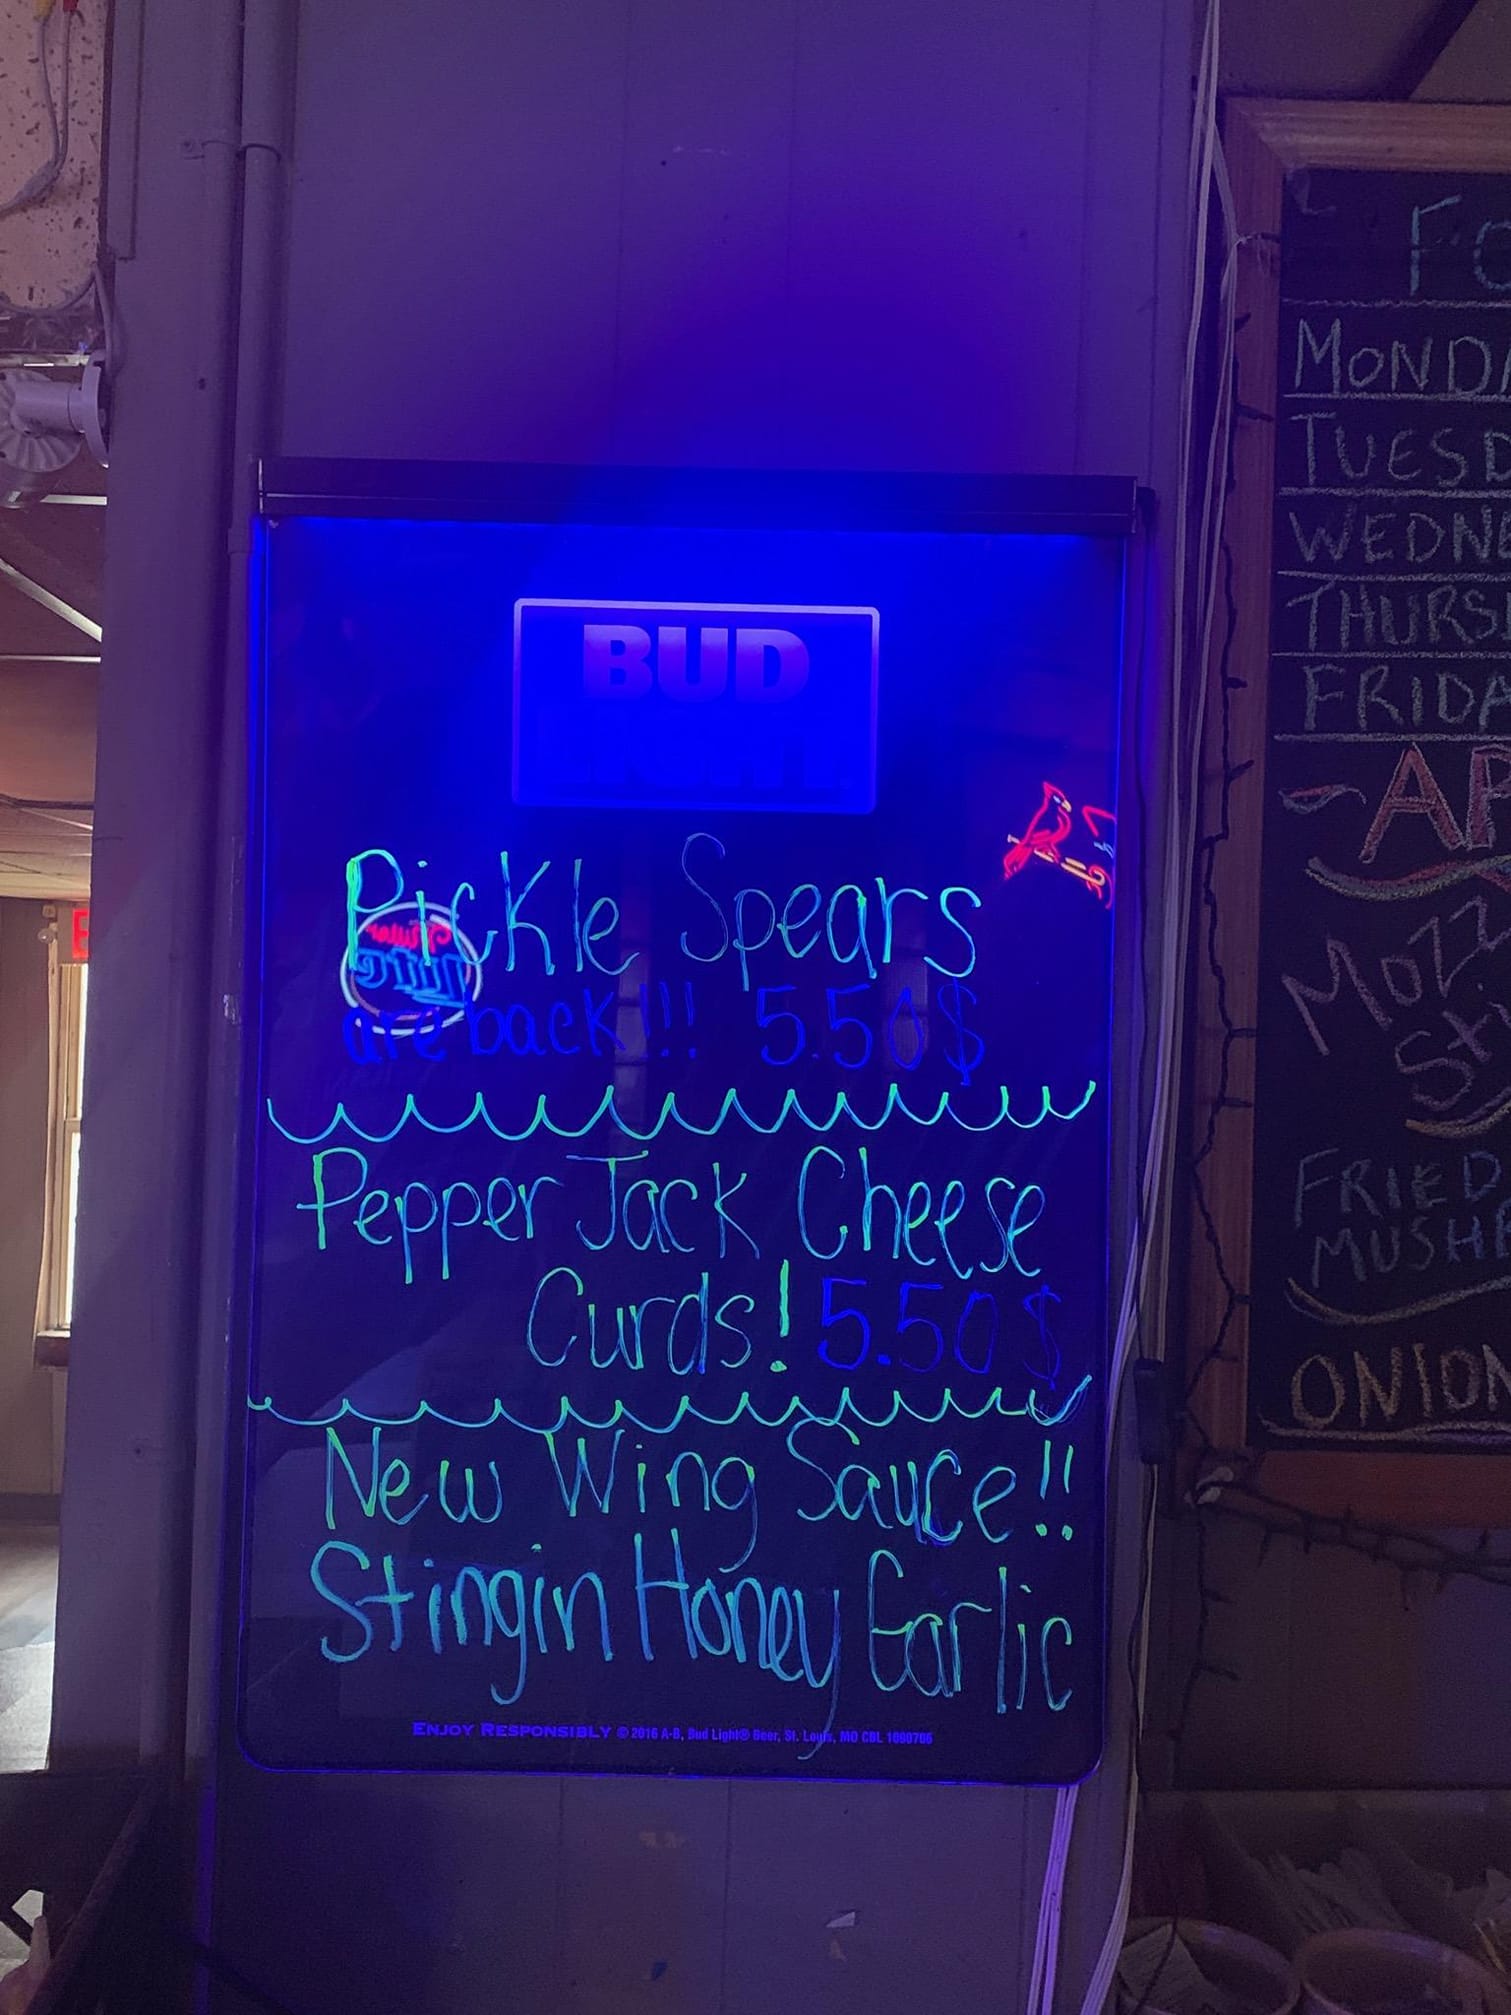 BUD
LIGHT
Pickle Spears
are back!!! 5.50$
Pepper Jack Cheese
Curds! 5.50$
New Wing Sauce!!
Stingin Honey Garlic
ENJOY RESPONSIBLY © 2016 A-B, Bud Light® Beer, St. Louis, MO CBL 1090706
Lite
FO
MONDA
TUESD
WEDNE
THURS
FRIDA
-AP
MOZZ
Sti
FRIED
MUSHR
ONION